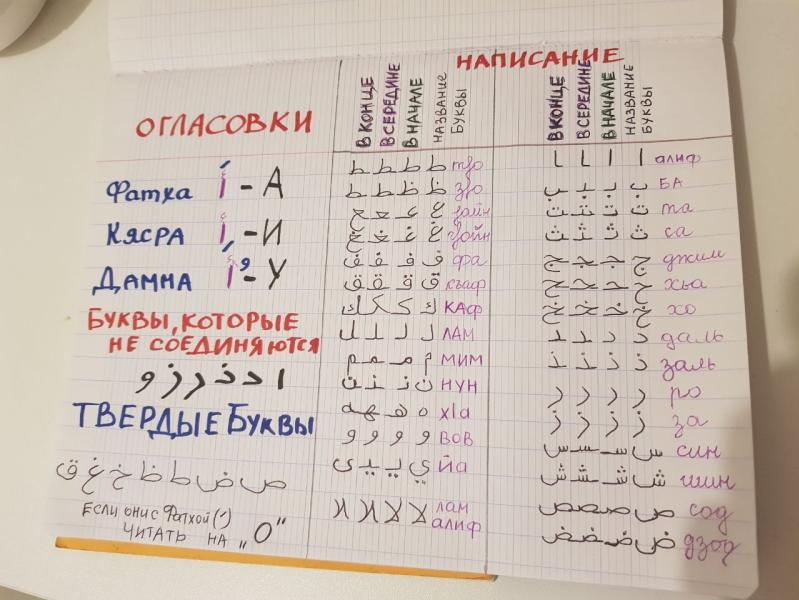 ОГЛАСОВКИ
Фатха أَ - А
Кясра أِ - И
Дамма أُ - У
БУКВЫ, КОТОРЫЕ
НЕ СОЕДИНЯЮТСЯ
ا د ذ ر ز و
ТВЕРДЫЕ БУКВЫ
ص ض ط ظ خ غ ق
ЕСЛИ ОНИ С ФАТХОЙ (َ)
ЧИТАТЬ НА „О"
НАПИСАНИЕ
В КОНЦЕ В СЕРЕДИНЕ В НАЧАЛЕ НАЗВАНИЕ БУКВЫ
ط ط ط ط тo
ظ ظ ظ ظ зo
ع عـ ـعـ ـع гайн
غ غـ ـغـ ـغ гойн
ف فـ ـفـ ـف фа
ق قـ ـقـ ـق къаф
ك كـ ـكـ ـك КАФ
ل لـ ـلـ ـل ЛАМ
م مـ ـمـ ـم МИМ
ن نـ ـنـ ـن НУН
ه هـ ـهـ ـه хIа
و و و و ВОВ
ي يـ ـيـ ـى йа
لا لا لا لا лам
алиф
В КОНЦЕ В СЕРЕДИНЕ В НАЧАЛЕ НАЗВАНИЕ БУКВЫ
ا ا ـا ـا алиф
ب بـ ـبـ ـب БА
ت تـ ـتـ ـت та
ث ثـ ـثـ ـث са
ج جـ ـجـ ـج джим
ح حـ ـحـ ـح хьа
خ خـ ـخـ ـخ хо
د د ـد ـد даль
ذ ذ ـذ ـذ заль
ر ر ر ر ро
ز ز ز ز за
س سـ ـسـ ـس син
ش شـ ـشـ ـش шин
ص صـ ـصـ ـص сод
ض ضـ ـضـ ـض дзод